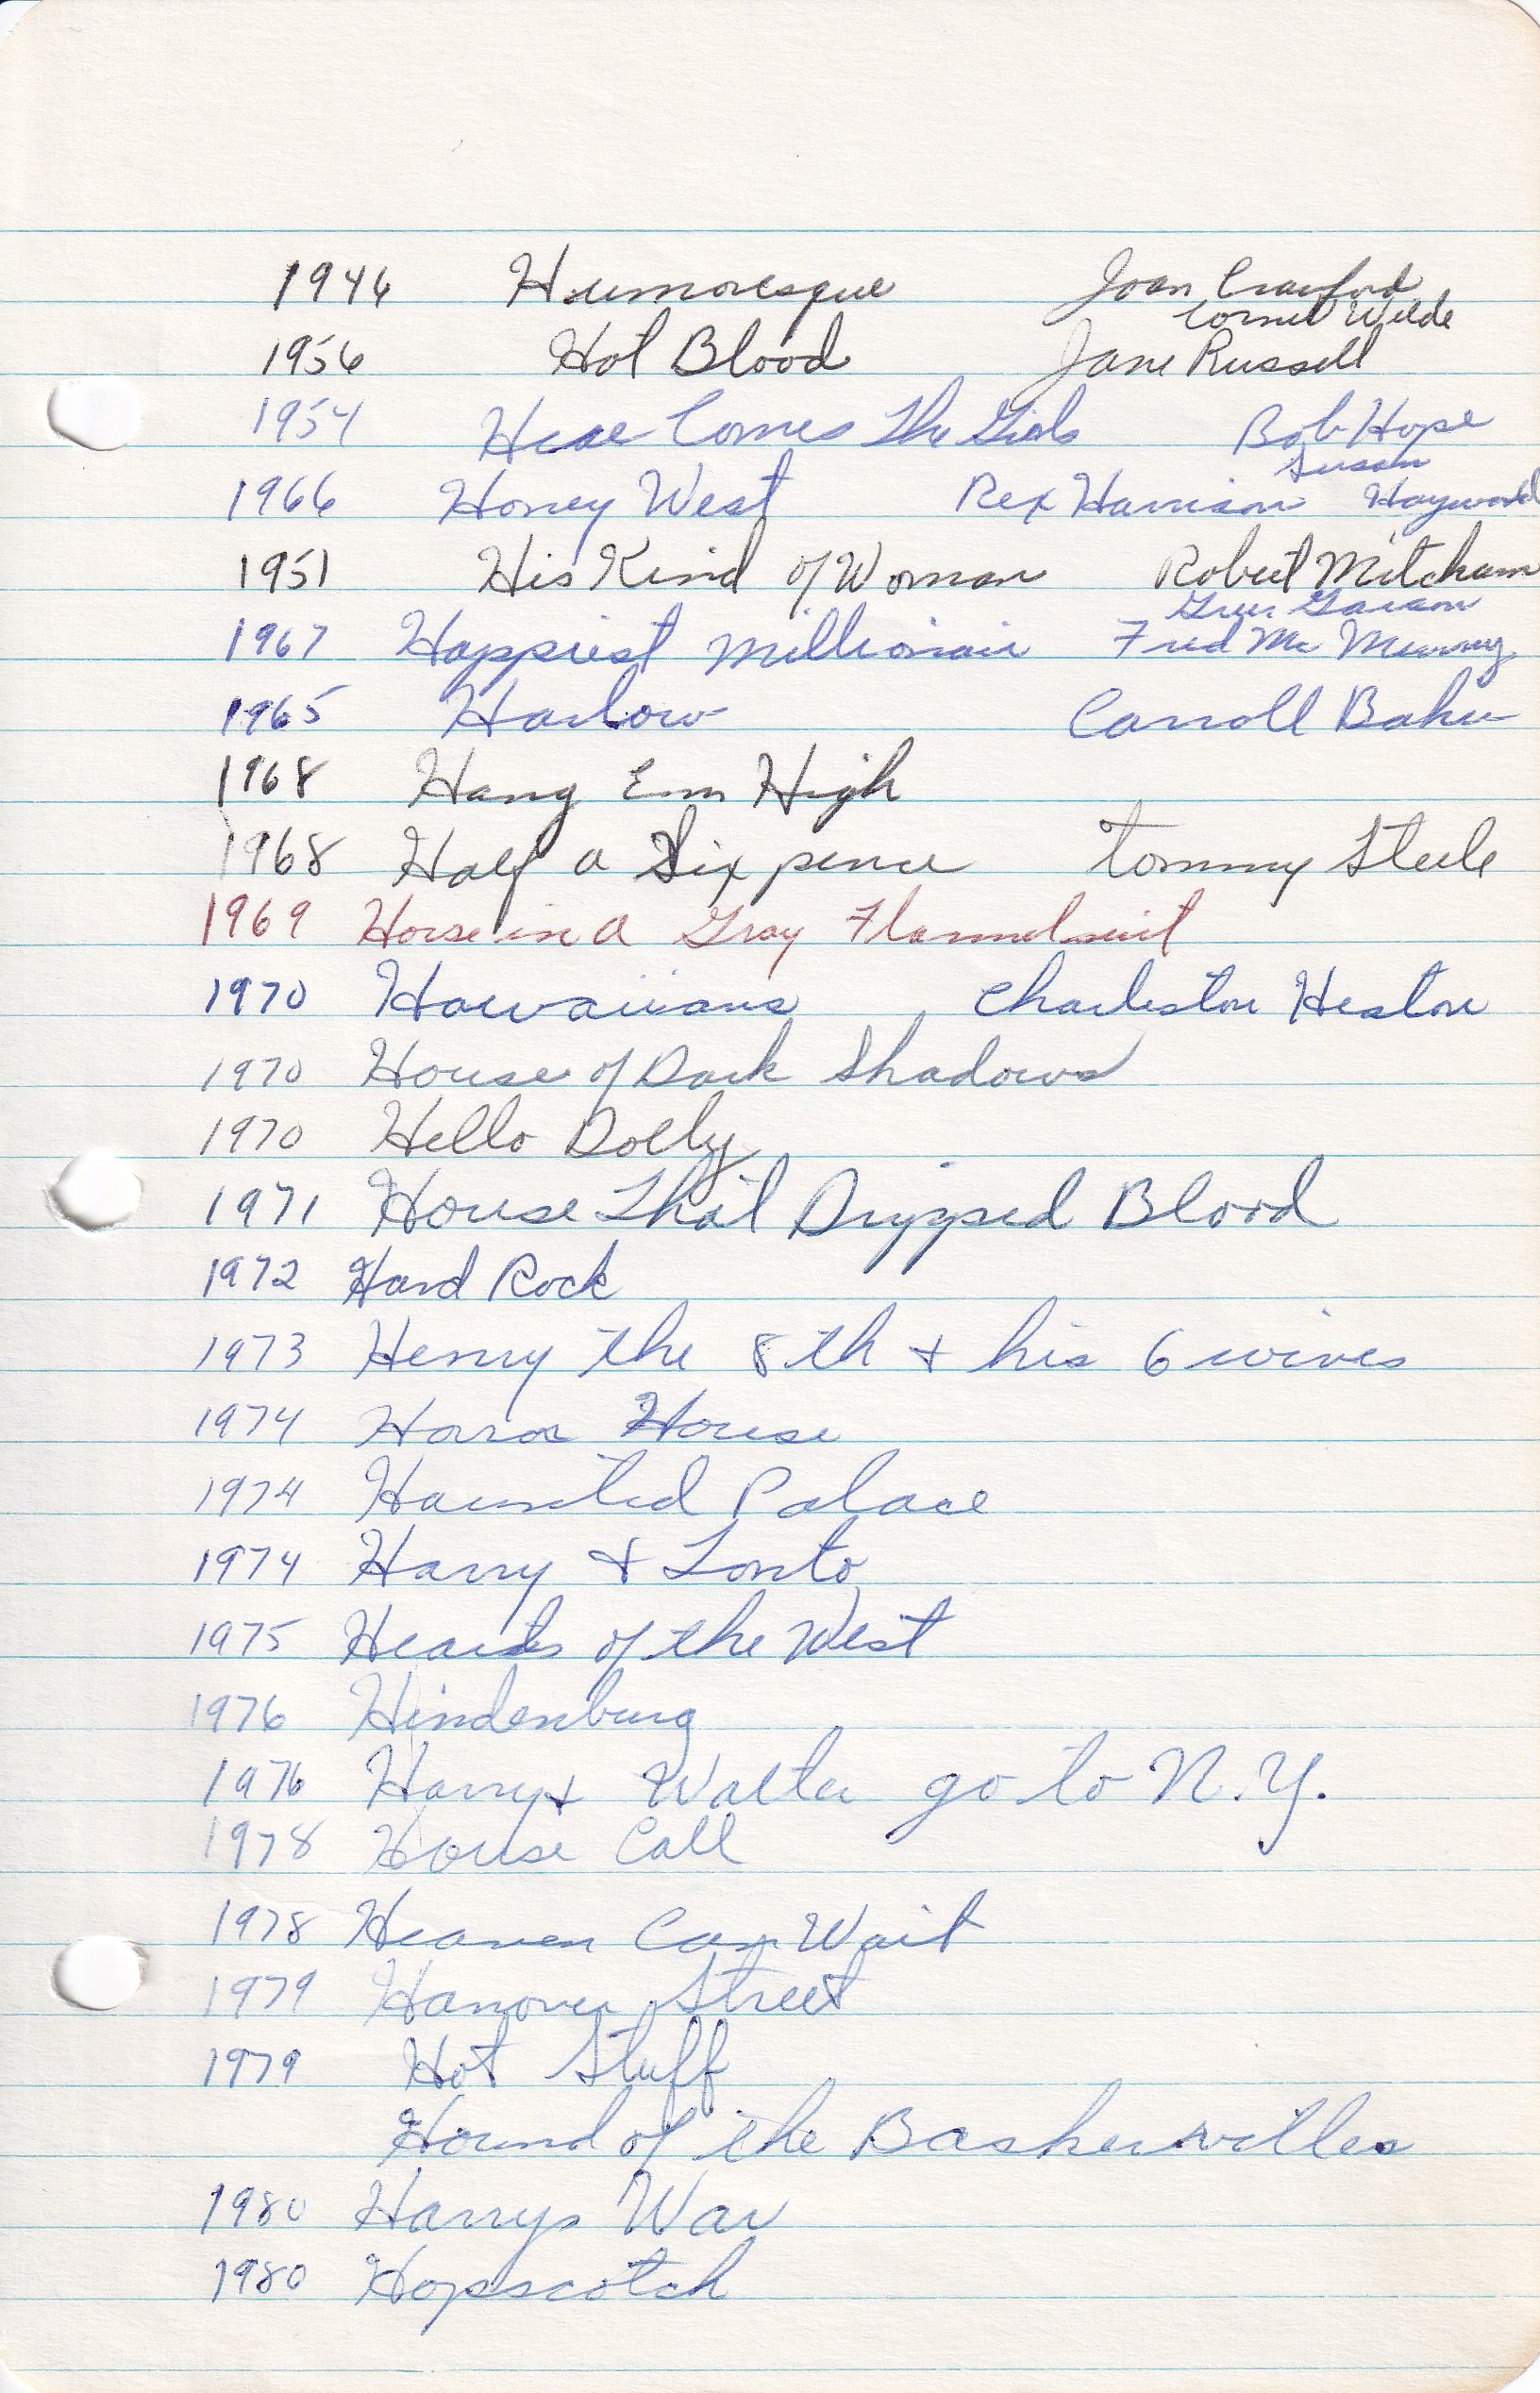 1946 Humoresque Joan Crawford
Cornel Wilde
1956 Hot Blood Jane Russell
1954 Here Comes The Girls Bob Hope
Susan
1966 Honey West Rex Harrison Hayward
1951 His Kind of Woman Robert Mitcham
Greer Garson
1967 Happiest Millionair Fred Mc Murray
1965 Harlow Carroll Baker
1968 Hang Em High
1968 Half a Six pence Tommy Steele
1969 Horse in A Gray Flannel suit
1970 Hawaiians Charleston Heston
1970 House of Dark Shadows
1970 Hello Dolly
1971 House That Dripped Blood
1972 Hard Rock
1973 Henry the 8th + his 6 wives
1974 Horror House
1974 Haunted Palace
1974 Harry & Tonto
1975 Hearts of the West
1976 Hindenburg
1976 Harry + Walter go to N.Y.
1978 House Call
1978 Heaven Can Wait
1979 Hanover Street
1979 Hot Stuff
Hound of the Baskervilles
1980 Harrys War
1980 Hopscotch